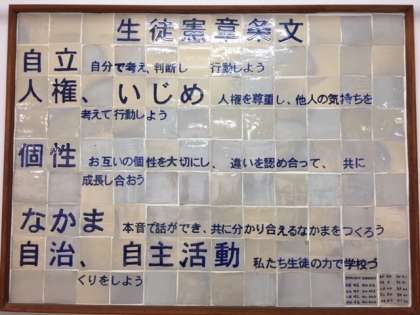 生徒憲章条文
自立 自分で考え、判断し 行動しよう
人権、いじめ 人権を尊重し、他人の気持ちを
考えて行動しよう
個性 お互いの個性を大切にし、 違いを認め合って、 共に
成長し合おう
なかま 本音で話ができ、共に分かり合えるなかまをつくろう
自治、自主活動 私たち生徒の力で学校づ
くりをしよう